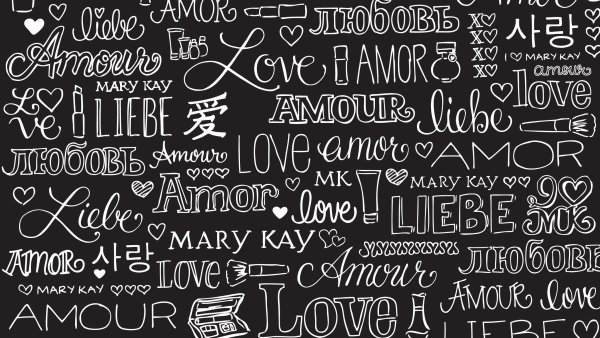 liebe
ЛЮБОВЬ
XO
XO
XO
XO
사랑
Amour
Love
AMOR
I ♡ MARY KAY
amour
MARY KAY
Love
LIEBE
爱
AMOUR
liebe
love
ЛЮБОВЬ
Amour
LOVE
amor
AMOR
Liebe
Amor
MK
love
MARY KAY
LIEBE
MARY KAY
XXXXXXXXX
ЛЮБОВЬ
AMOR
사랑
LOVE
Amour
MARY KAY
AMOUR
Love
AMOUR
love
LIEBE